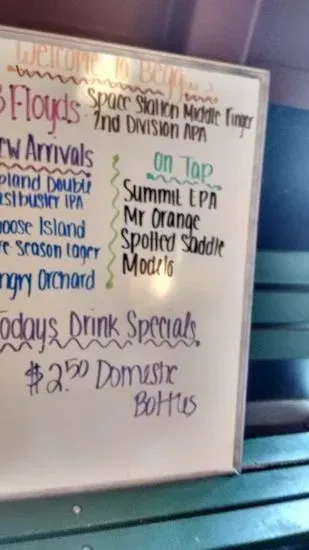 Welcome to
3 Floyds Space Station Middle Finger
2nd Division APA
ew Arrivals
pland Double
astbuster IPA
oose Island
re Season Lager
ngry Orchard
on Tap
Summit EPA
Mr Orange
Spotted Saddle
Modelo
odays Drink Specials
$2.50 Domestic
Bottles